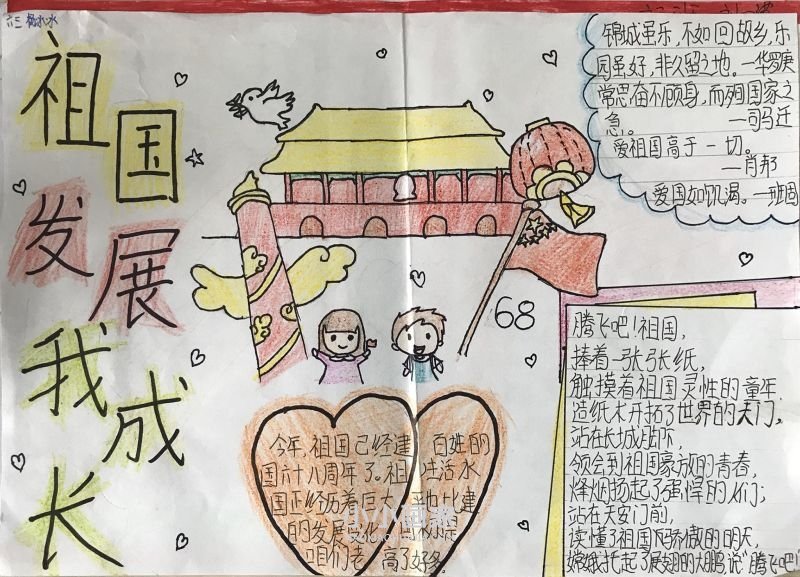 六三
祖国发展
我成长
锦城虽乐,不如回故乡,乐
园虽好,非久留之地。—华罗庚
常思奋不顾身,而殉国家之
急。 —司马迁
爱祖国高于一切。
—肖邦
爱国如饥渴。—班固
68
今年,祖国已经建
国六十八周年了。祖
国正经历着巨大
的发展
咱们老
百姓的
生活水
也比建
高了好多
腾飞吧!祖国,
捧着一张张纸,
触摸着祖国灵性的童年
造纸术开拓了世界的天门,
站在长城脚下,
领会到祖国豪放的青春,
烽烟扬起了强悍的人们;
站在天安门前,
读懂了祖国骄傲的明天,
嫦娥托起了展翅的大鹏,说"腾飞吧!
小小画家